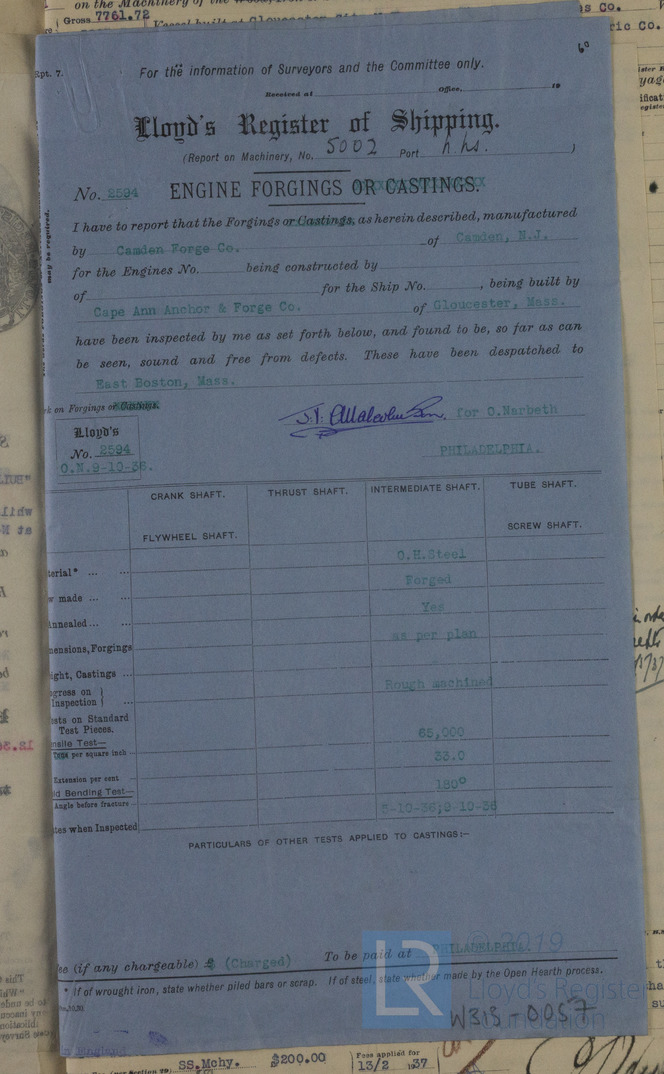 on the Machinery of the
Gross 7761.72
Rpt. 7.
For the information of Surveyors and the Committee only.
Received at Office, 19
Lloyd's Register of Shipping.
(Report on Machinery, No. 5002 Port n.hs. )
No. 2594 ENGINE FORGINGS OR CASTINGS.
I have to report that the Forgings or Castings, as herein described, manufactured
by Camden Forge Co. of Camden, N.J.
for the Engines No. being constructed by
of for the Ship No. , being built by
Cape Ann Anchor & Forge Co. of Gloucester, Mass.
have been inspected by me as set forth below, and found to be, so far as can
be seen, sound and free from defects. These have been despatched to
East Boston, Mass.
k on Forgings or Castings.
for O.Narbeth
Lloyd's
No. 2594
O.N.9-10-36.
PHILADELPHIA.
CRANK SHAFT. THRUST SHAFT. INTERMEDIATE SHAFT. TUBE SHAFT.
FLYWHEEL SHAFT. SCREW SHAFT.
terial* ... ... O.H.Steel
w made ... ... Forged
Annealed ... ... Yes
ensions, Forgings as per plan
ight, Castings ...
gress on Inspection ... Rough machined
sts on Standard
Test Pieces.
nsile Test—
Tons per square inch 65,000
Extension per cent 33.0
d Bending Test—
Angle before fracture 180°
tes when Inspected 5-10-36;9-10-36
PARTICULARS OF OTHER TESTS APPLIED TO CASTINGS:—
ee (if any chargeable) £ (Charged) To be paid at PHILADELPHIA.
* If of wrought iron, state whether piled bars or scrap. If of steel, state whether made by the Open Hearth process.
© 2019
LR
Lloyd's Register
Foundation
W313-0057
SS.Mchy. $200.00 Fees applied for
13/2 1937